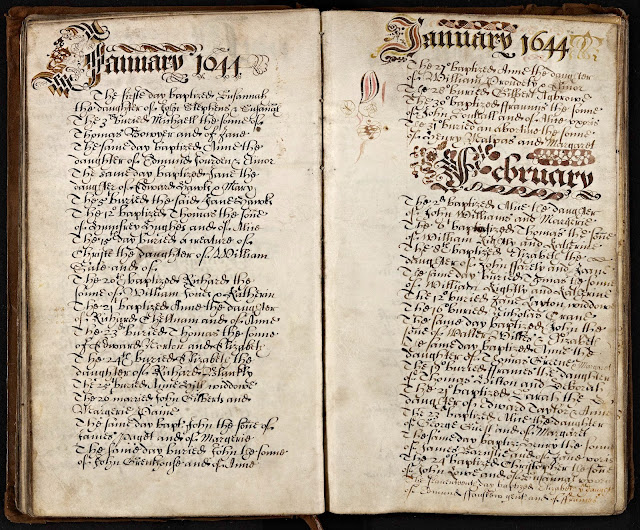 January 1644
The firste day baptized Susannah
the daughter of John Stephens & Susanna
The 3d buried Michaell the sonne of
Thomas Bowyer and of Jane
The same day baptized Anne the
daughter of Edmund and of Elinor
The same day baptized Jane the
daughter of Edward Hawks & Mary
The 5 buried the saide Jane Hawks
The 12 baptized Thomas the sone
of Humfrey Hughes and of Alice
The 15 day buried a creature of
Christe the daughter of William
and of
The 20 baptized Richard the
sonne of William Jones & Katherin
The 21 baptized Anne the daughter
of Richard and of Anne
The 23 buried Thomas the sonne
of Edward Norton and Elizabeth
The 24 buried Elizabeth the
daughter of Richard
The 25 buried Anne widdowe
The 26 married John Gilberts and
Margerie Paine
The same day bapt John the sone of
James Paget and of Margerie
The same day buried John the sonne
of John Greenhouse and of Anne
January 1644
The 27 baptized Anne the daughter
of William and Elinor
The 28 buried Gilbert
The 30 baptized the sonne
of John and of Alice
buried an abortive the sonne
of Henry Malpas and Margaret
February
The 2d baptized Alice the daughter
of John Williams and Margerie
The 6 baptized Thomas the sonne
of William and Katherine
The 8 baptized Elizabeth the
daughter of John and Jane
The same day buried Thomas the sonne
of William and Katherine
The 12 buried Jane widdow
The 16 buried Nicholas Crane
The same day baptized John the
sone of Walter and Elizabeth
The same day baptized Anne the
daughter of Thomas Greene & Margaret
The 19 buried the daughter
of Thomas and Deborah
The 21 baptized Sarah the
daughter of Edward Taylor & Anne
The 23 baptized Alice the daughter
of George and of Margaret
The same day baptized Henry the sonne
of James and of Jane
The baptized Christopher the sone
of John Lowe and of Susanna
The day baptized Elizabeth
of Edmund gent and of